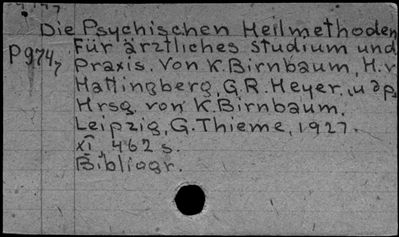 Die Psychischen Heilmethoden
Für ärztliches Studium und
P974, Praxis. Von K. Birnbaum, H. v.
Hattingberg, G.R. Heyer, u др
Hrsg. von K. Birnbaum.
Leipzig, G. Thieme, 1927.
XI, 462 s.
Bibliogr.